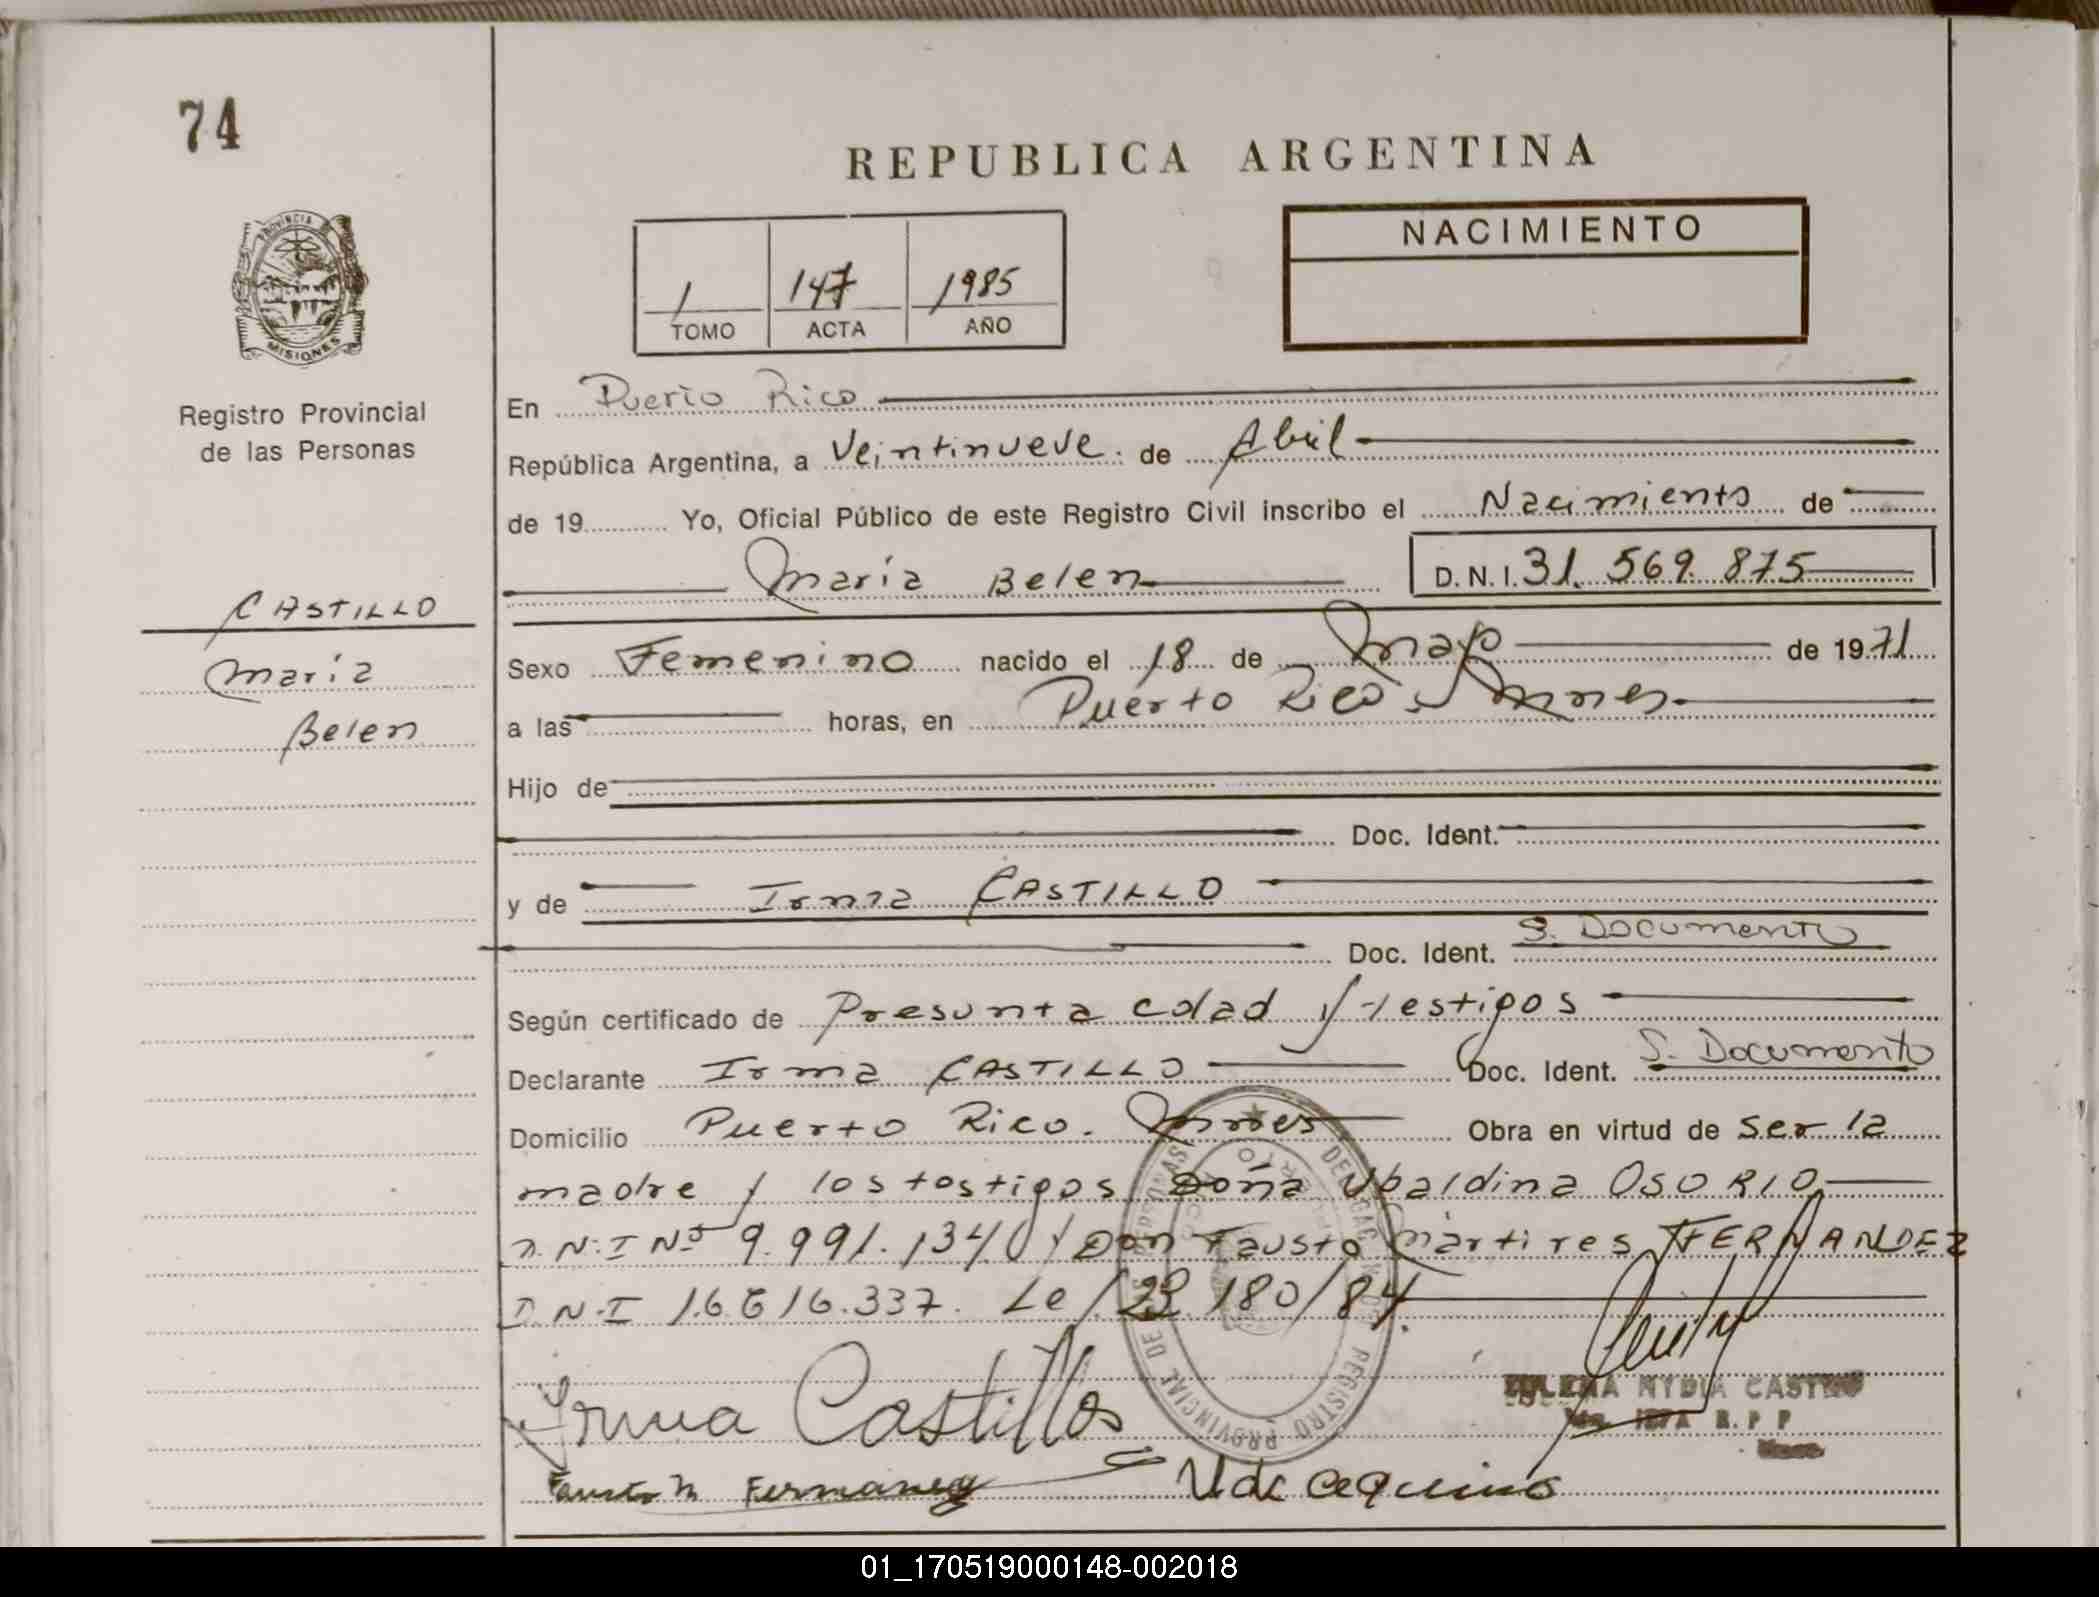 74
REPUBLICA ARGENTINA
PROVINCIA
MISIONES
Registro Provincial
de las Personas
1 147 1985
TOMO ACTA AÑO
NACIMIENTO
En Puerto Rico
República Argentina, a Veintinueve de Abril
de 19 Yo, Oficial Público de este Registro Civil inscribo el Nacimiento de
María Belen D.N.I. 31.569.875
CASTILLO
María
Belen
Sexo Femenino nacido el 18 de Mayo de 1971
a las horas, en Puerto Rico, Mnes
Hijo de
Doc. Ident.
y de Irma CASTILLO
Doc. Ident. S. Documento
Según certificado de Presunta edad y testigos
Declarante Irma CASTILLO Doc. Ident. S. Documento
Domicilio Puerto Rico. Mnes Obra en virtud de ser la
madre y los testigos Doña Ubaldina OSORIO
D.N.I Nº 9.991.134 y Don Fausto Mártires FERNANDEZ
D.N.I 16.616.337. Le 180/84.
REGISTRO PROVINCIAL DE
Irma Castillo
NYDIA
R.P.P
Fausto M